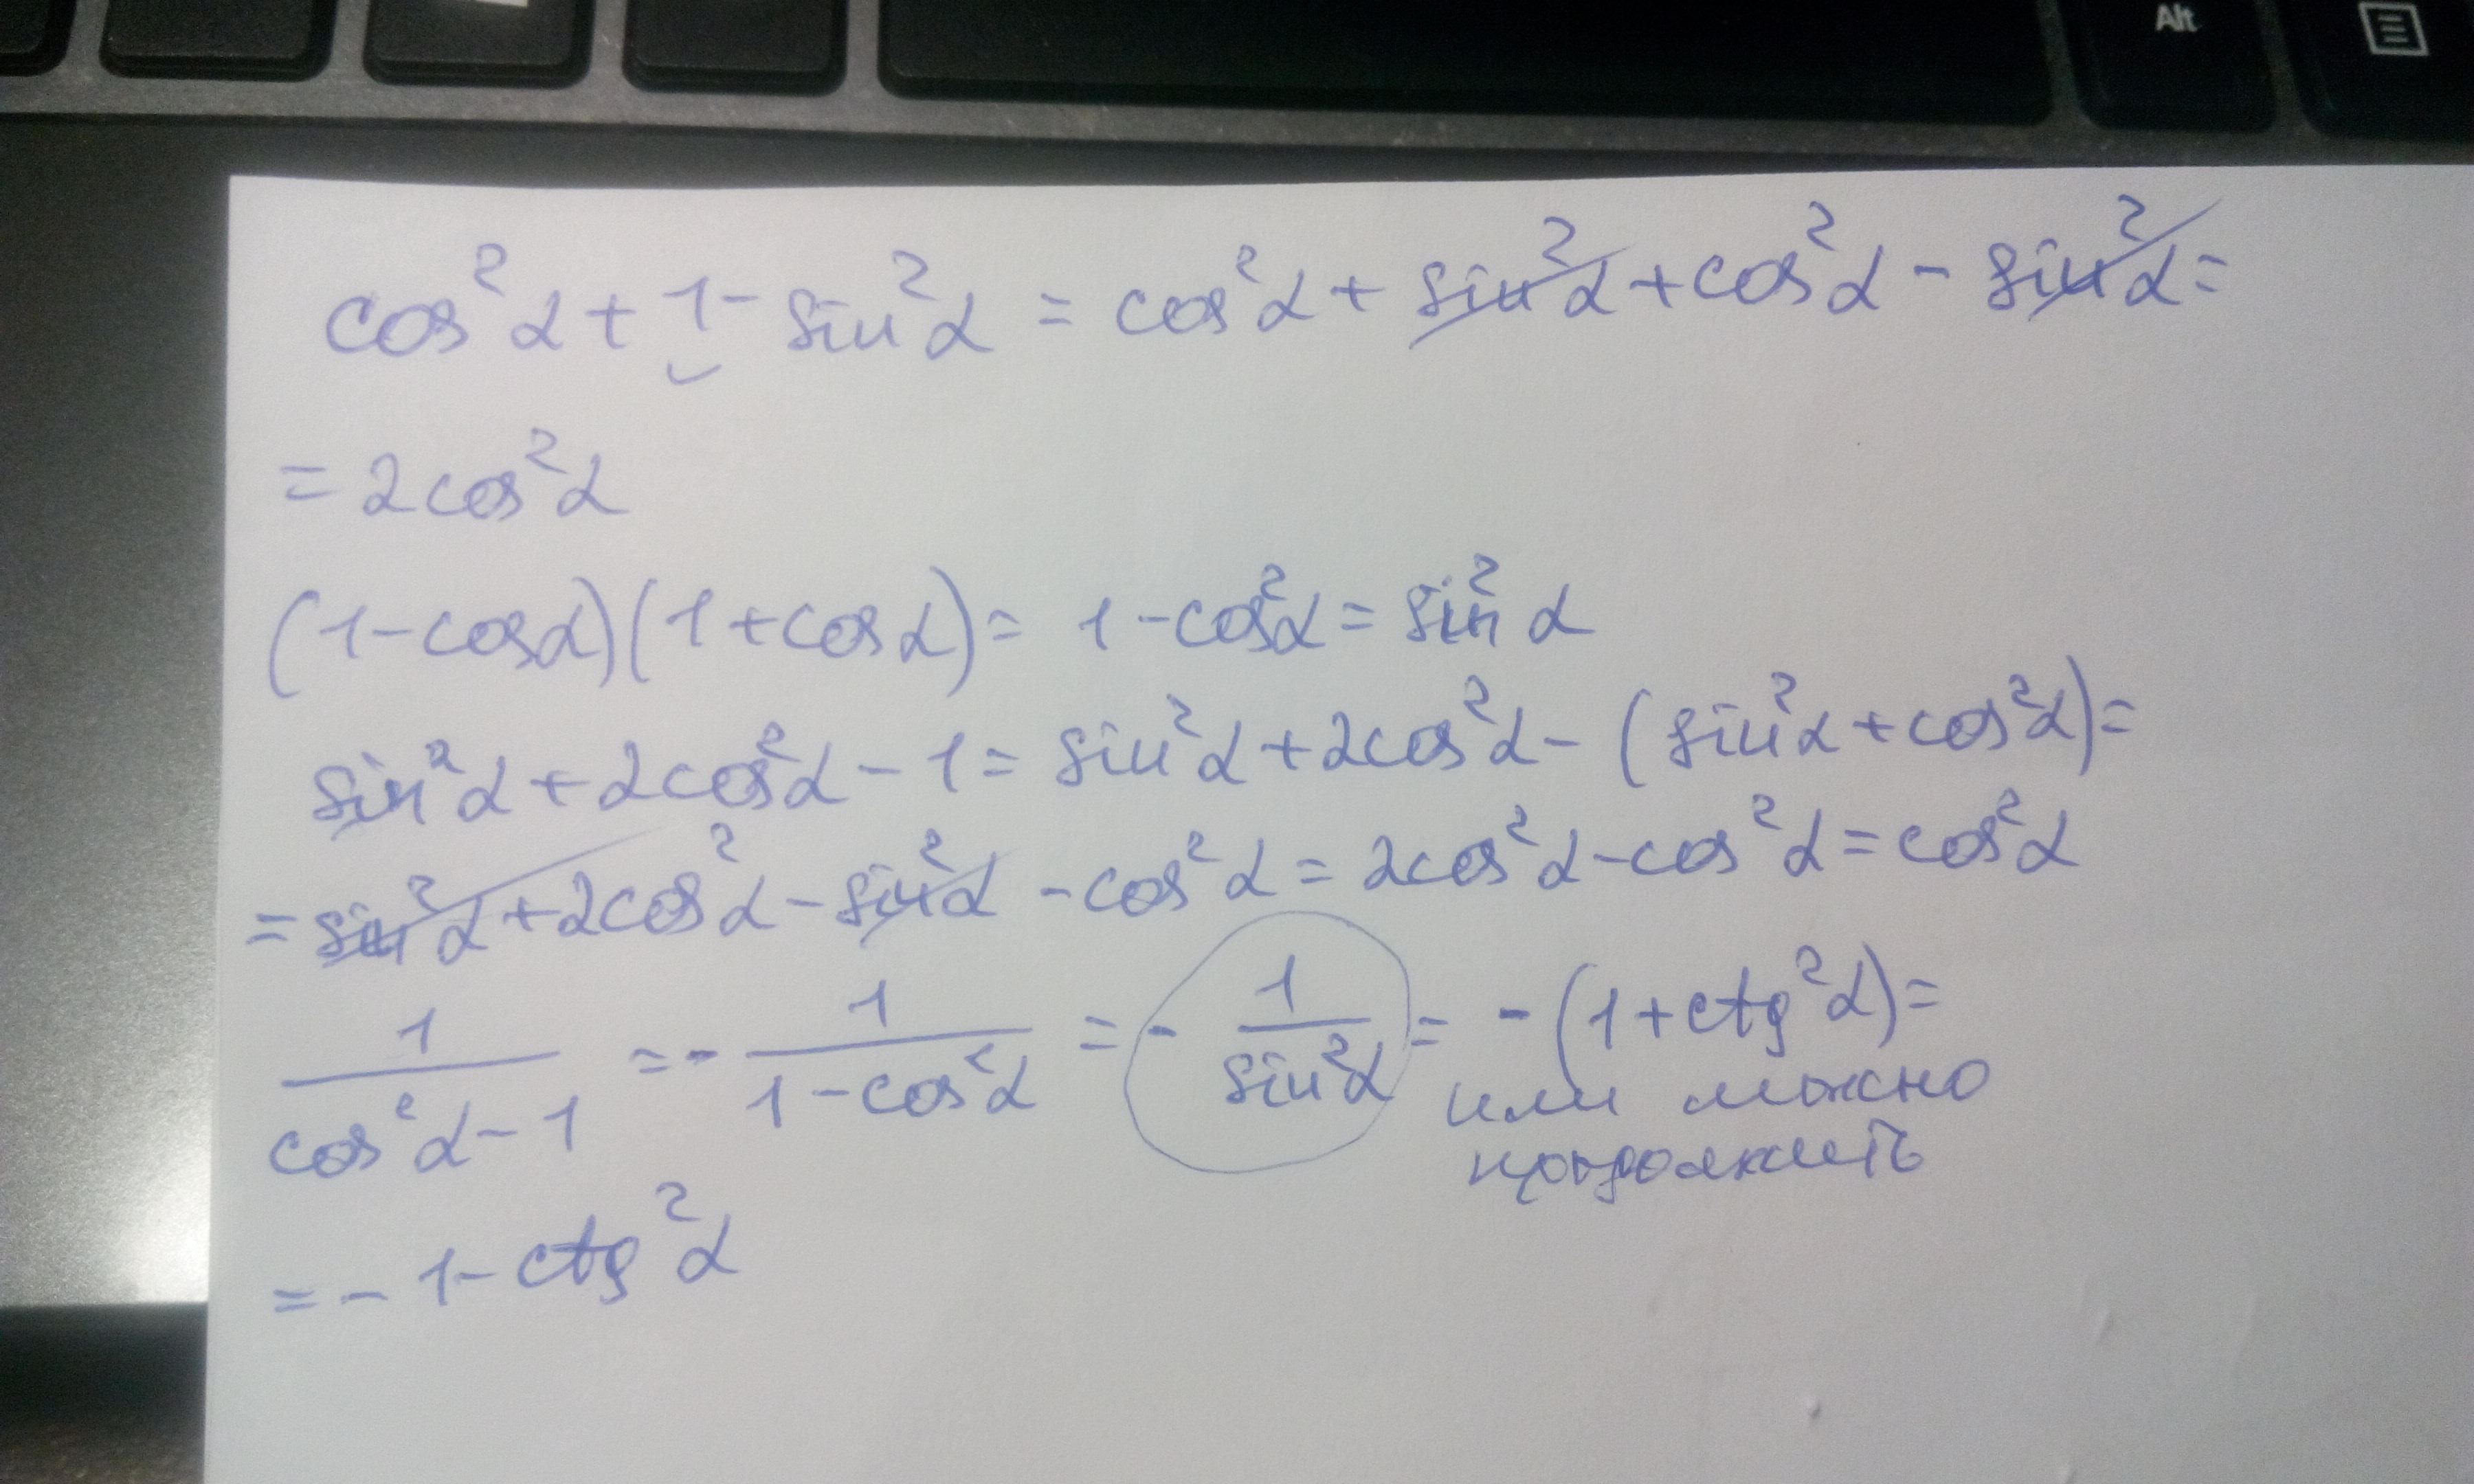 Alt
cos²α + 1 - sin²α = cos²α + sin²α + cos²α - sin²α =
= 2cos²α
(1 - cosα)(1 + cosα) = 1 - cos²α = sin²α
sin²α + 2cos²α - 1 = sin²α + 2cos²α - (sin²α + cos²α) =
= sin²α + 2cos²α - sin²α - cos²α = 2cos²α - cos²α = cos²α
1/(cos²α - 1) = - 1/(1 - cos²α) = - 1/sin²α = - (1 + ctg²α) =
или можно
продолжить
= - 1 - ctg²α